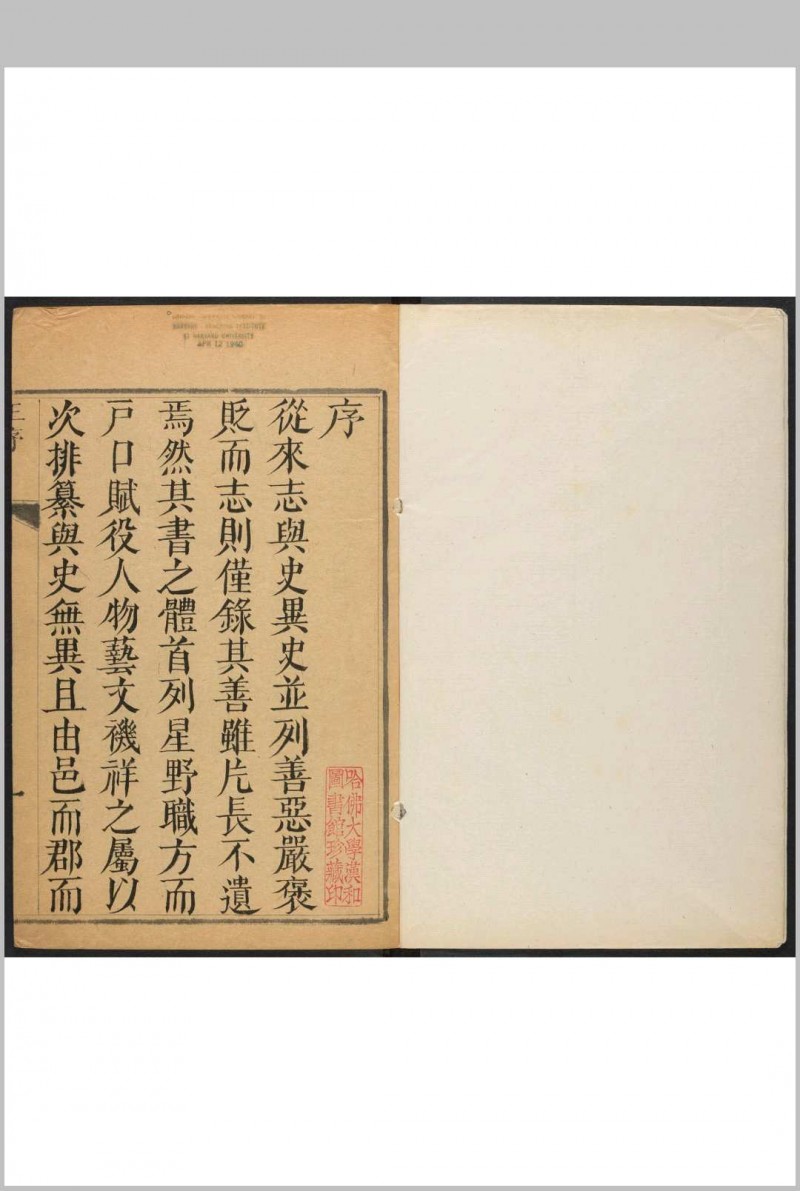 序
從來志與史異史並列善惡嚴褒
貶而志則僅錄其善雖片長不遺
焉然其書之體首列星野職方而
戸口賦役人物藝文禨祥之屬以
次排纂與史無異且由邑而郡而
哈佛大學漢和
圖書館珍藏印